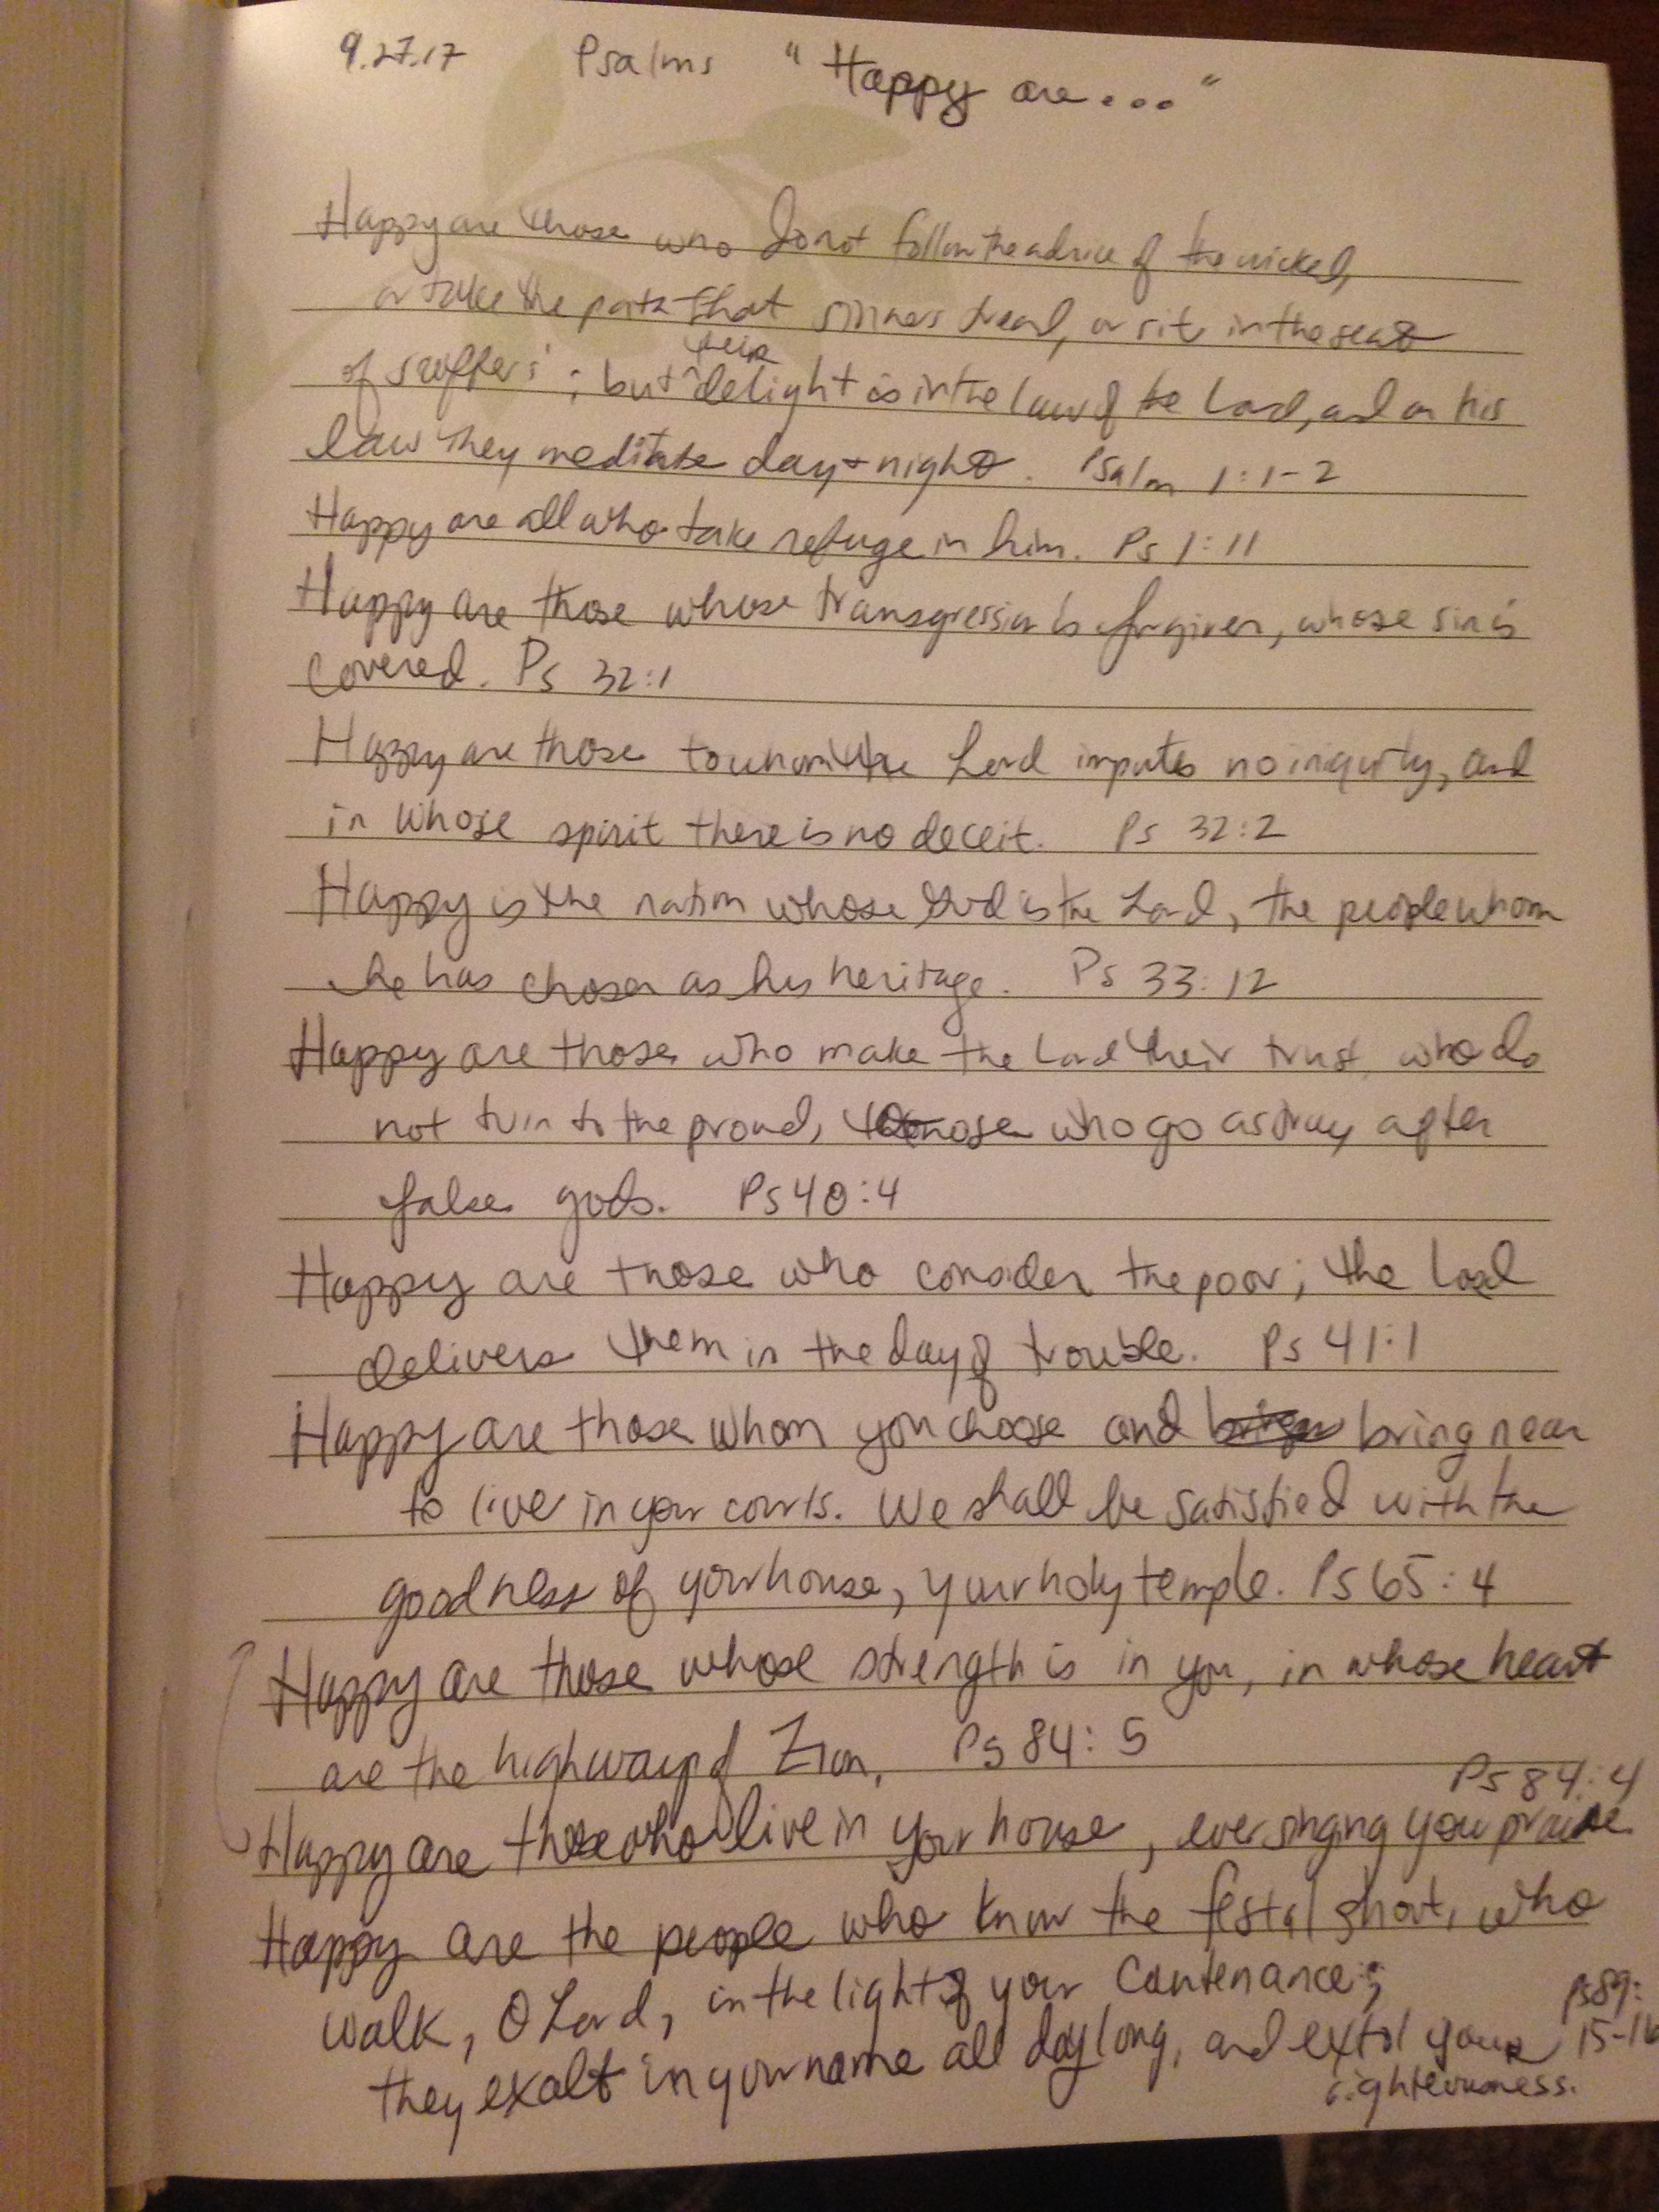 9.27.17 Psalms "Happy are...."
Happy are those who do not follow the advice of the wicked,
or take the path that sinners tread, or sit in the seat
of scoffers; but their delight is in the law of the Lord, and on his
law they meditate day + night. Psalm 1:1-2
Happy are all who take refuge in him. Ps 1:11
Happy are those whose transgression is forgiven, whose sin is
covered. Ps 32:1
Happy are those to whom the Lord imputes no iniquity, and
in whose spirit there is no deceit. Ps 32:2
Happy is the nation whose God is the Lord, the people whom
he has chosen as his heritage. Ps 33:12
Happy are those who make the Lord their trust, who do
not turn to the proud, those who go astray after
false gods. Ps 40:4
Happy are those who consider the poor; the Lord
delivers them in the day of trouble. Ps 41:1
Happy are those whom you choose and bring near
to live in your courts. We shall be satisfied with the
goodness of your house, your holy temple. Ps 65:4
Happy are those whose strength is in you, in whose heart
are the highways of Zion. Ps 84:5
Ps 84:4
Happy are those who live in your house, ever singing your praise
Happy are the people who know the festal shout, who
walk, O Lord, in the light of your contenance;
they exalt in your name all day long, and extol your
righteousness.
Ps 89:
15-16